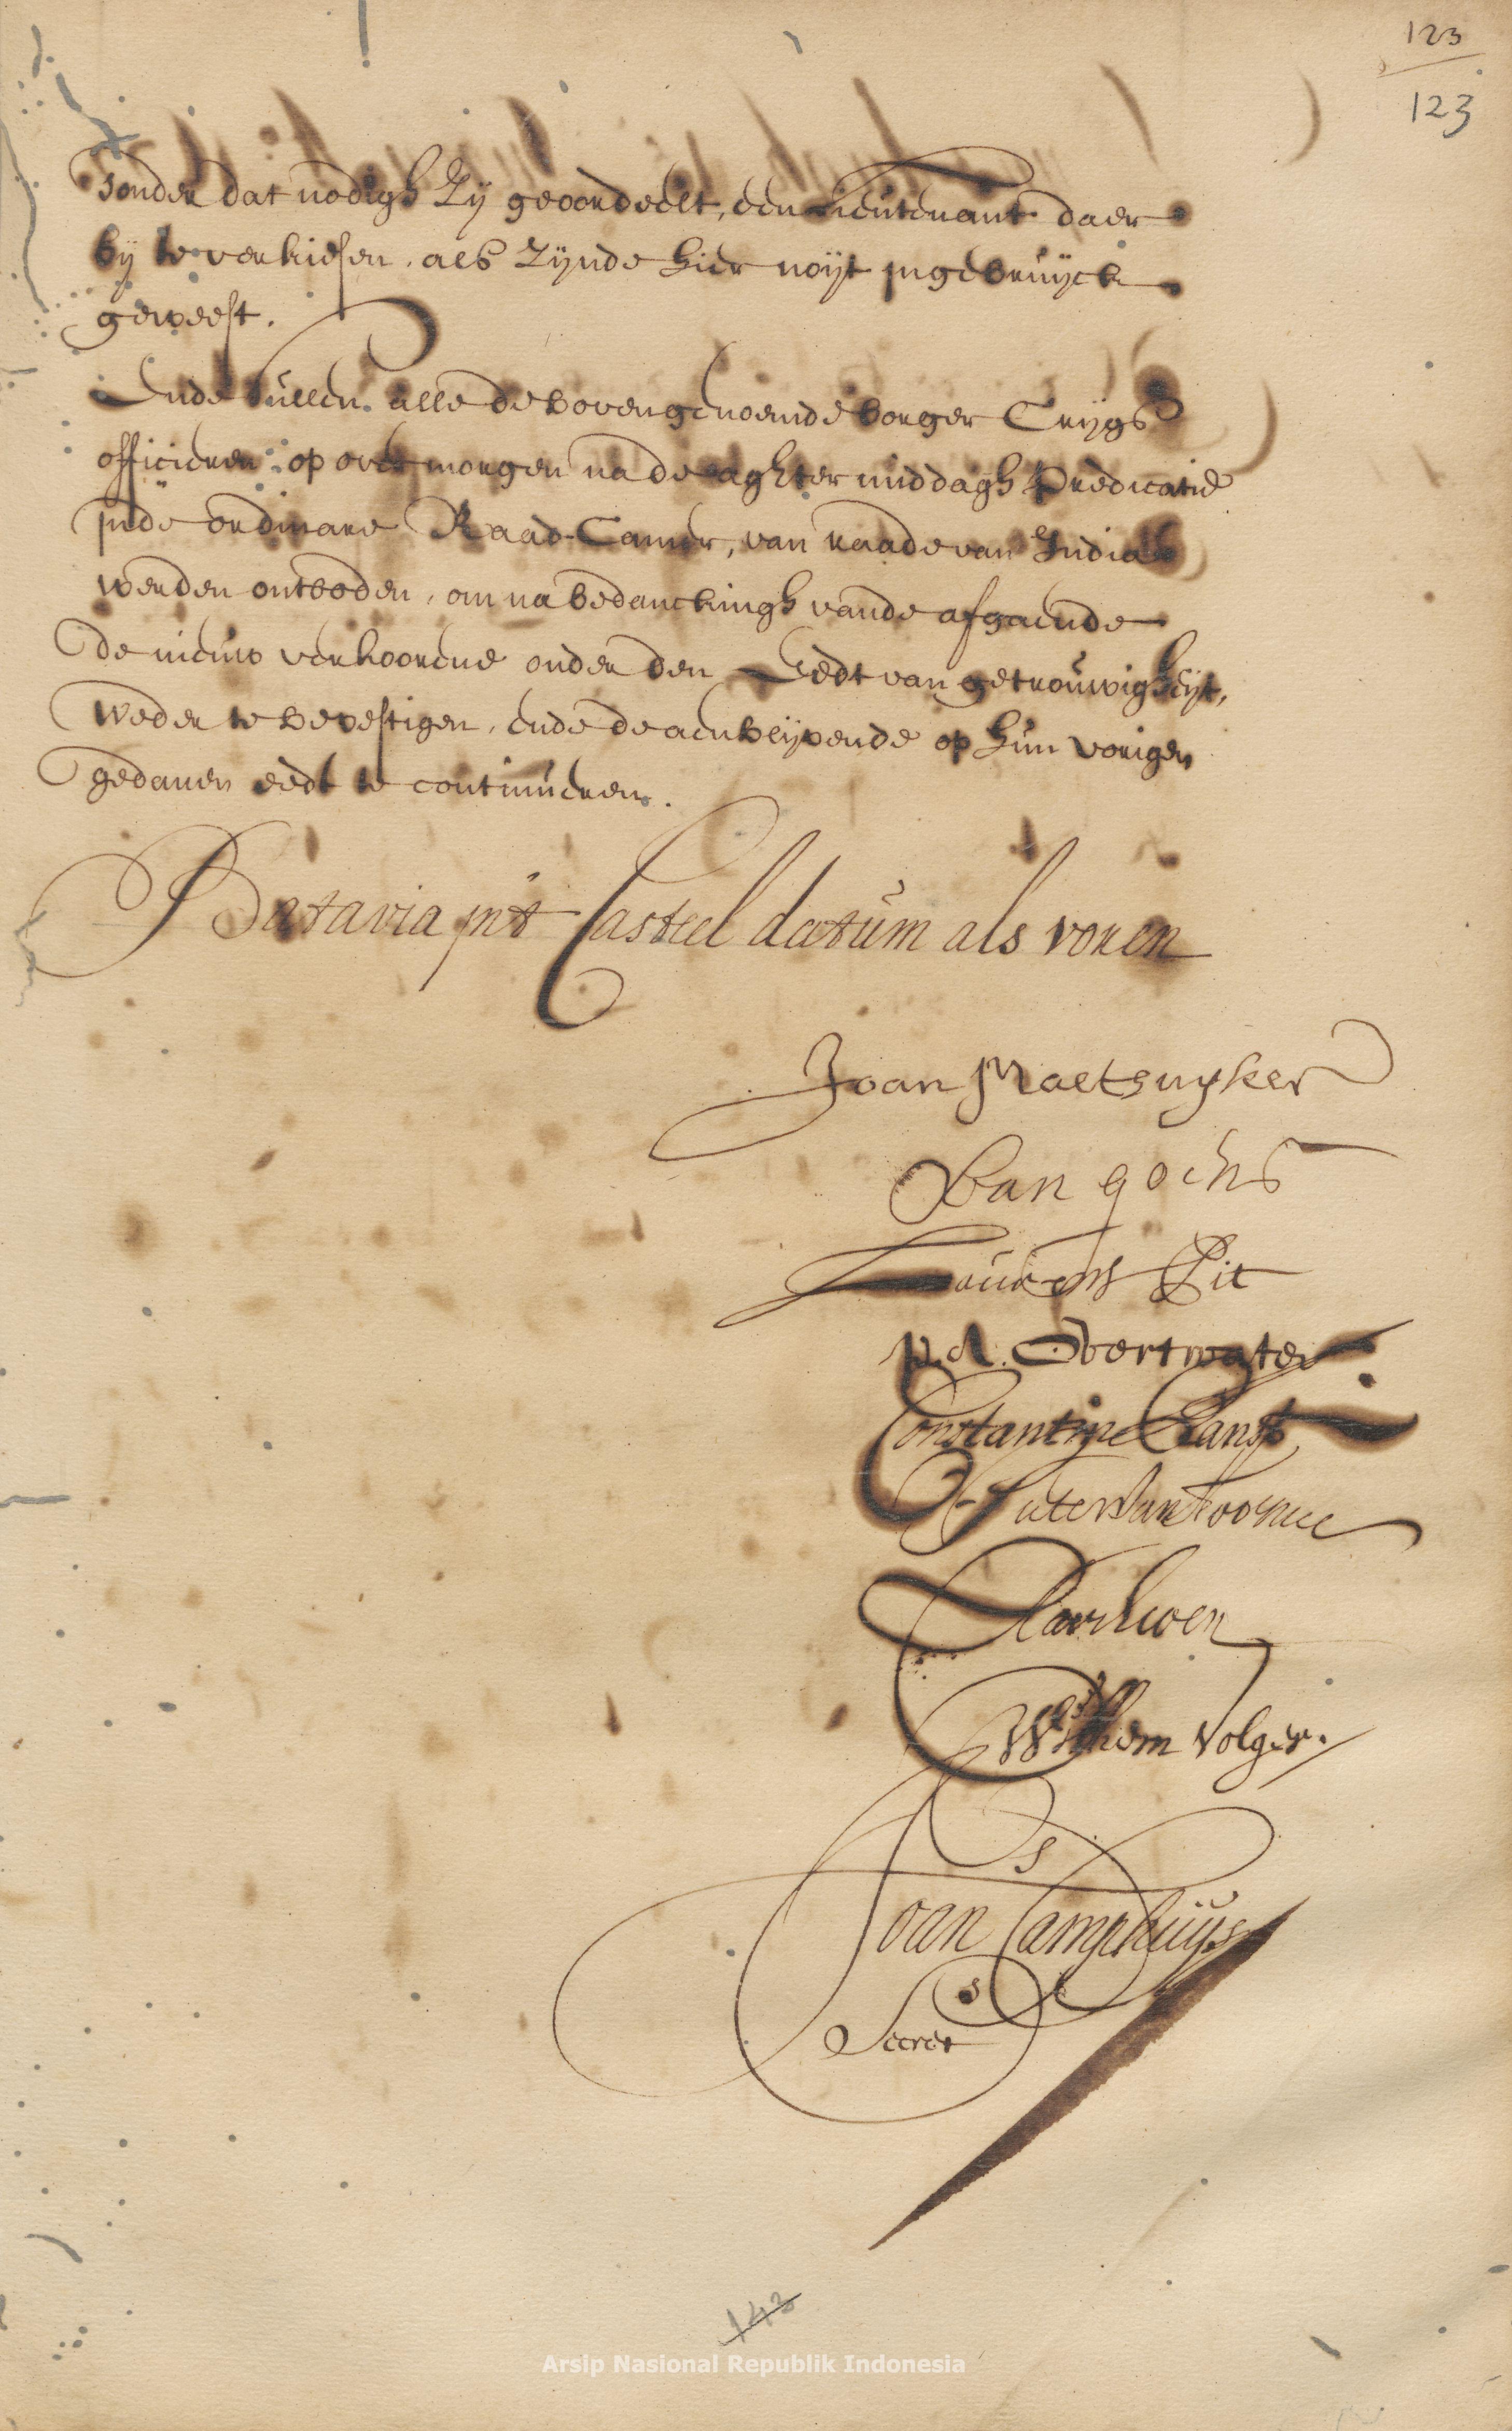 123
123
sonder dat nodigh zy geoordeelt, een Lieutenant daer
by te verkiesen, als zynde hier noyt in gebruyck
geweest.
Ende sullen alle de bovengenoemde borger Crygs
officieren op overmorgen na de aghtermiddaghs Predicatie
in de ordinare Raad-Camer, van raade van India
werden ontboden, om na bedanckingh vande afgaende
de nieuw verkoorene onder den Eedt van getrouwigheyt,
weder te bevestigen, ende de aenblyvende op hun vorigen
gedanen eedt te continueren.
Batavia in't Casteel datum als voren
Joan Maetsuyker
Van goens
Laurens Pit
p.A. Overtwater
Constantijn Ranst
Pieter van Hoorn
Willem Volger.
Joan Camphuys
Secret
143
Arsip Nasional Republik Indonesia